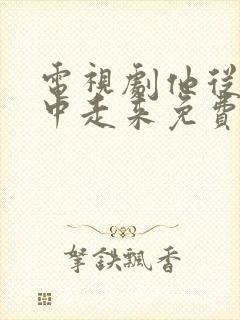 電視劇他從
中走来免費
拏鉄飄香